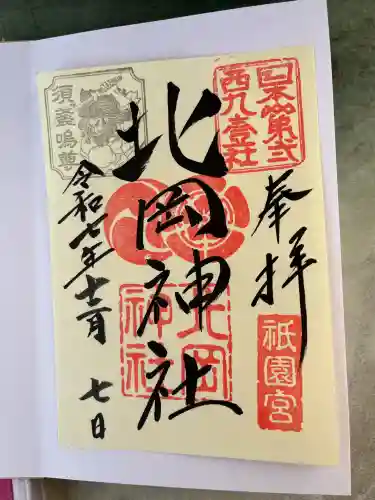 奉拝
日本第弐
西九壱社
祇園宮
北岡神社
北岡
神社
須盞嗚尊
令和七年十二月
七日